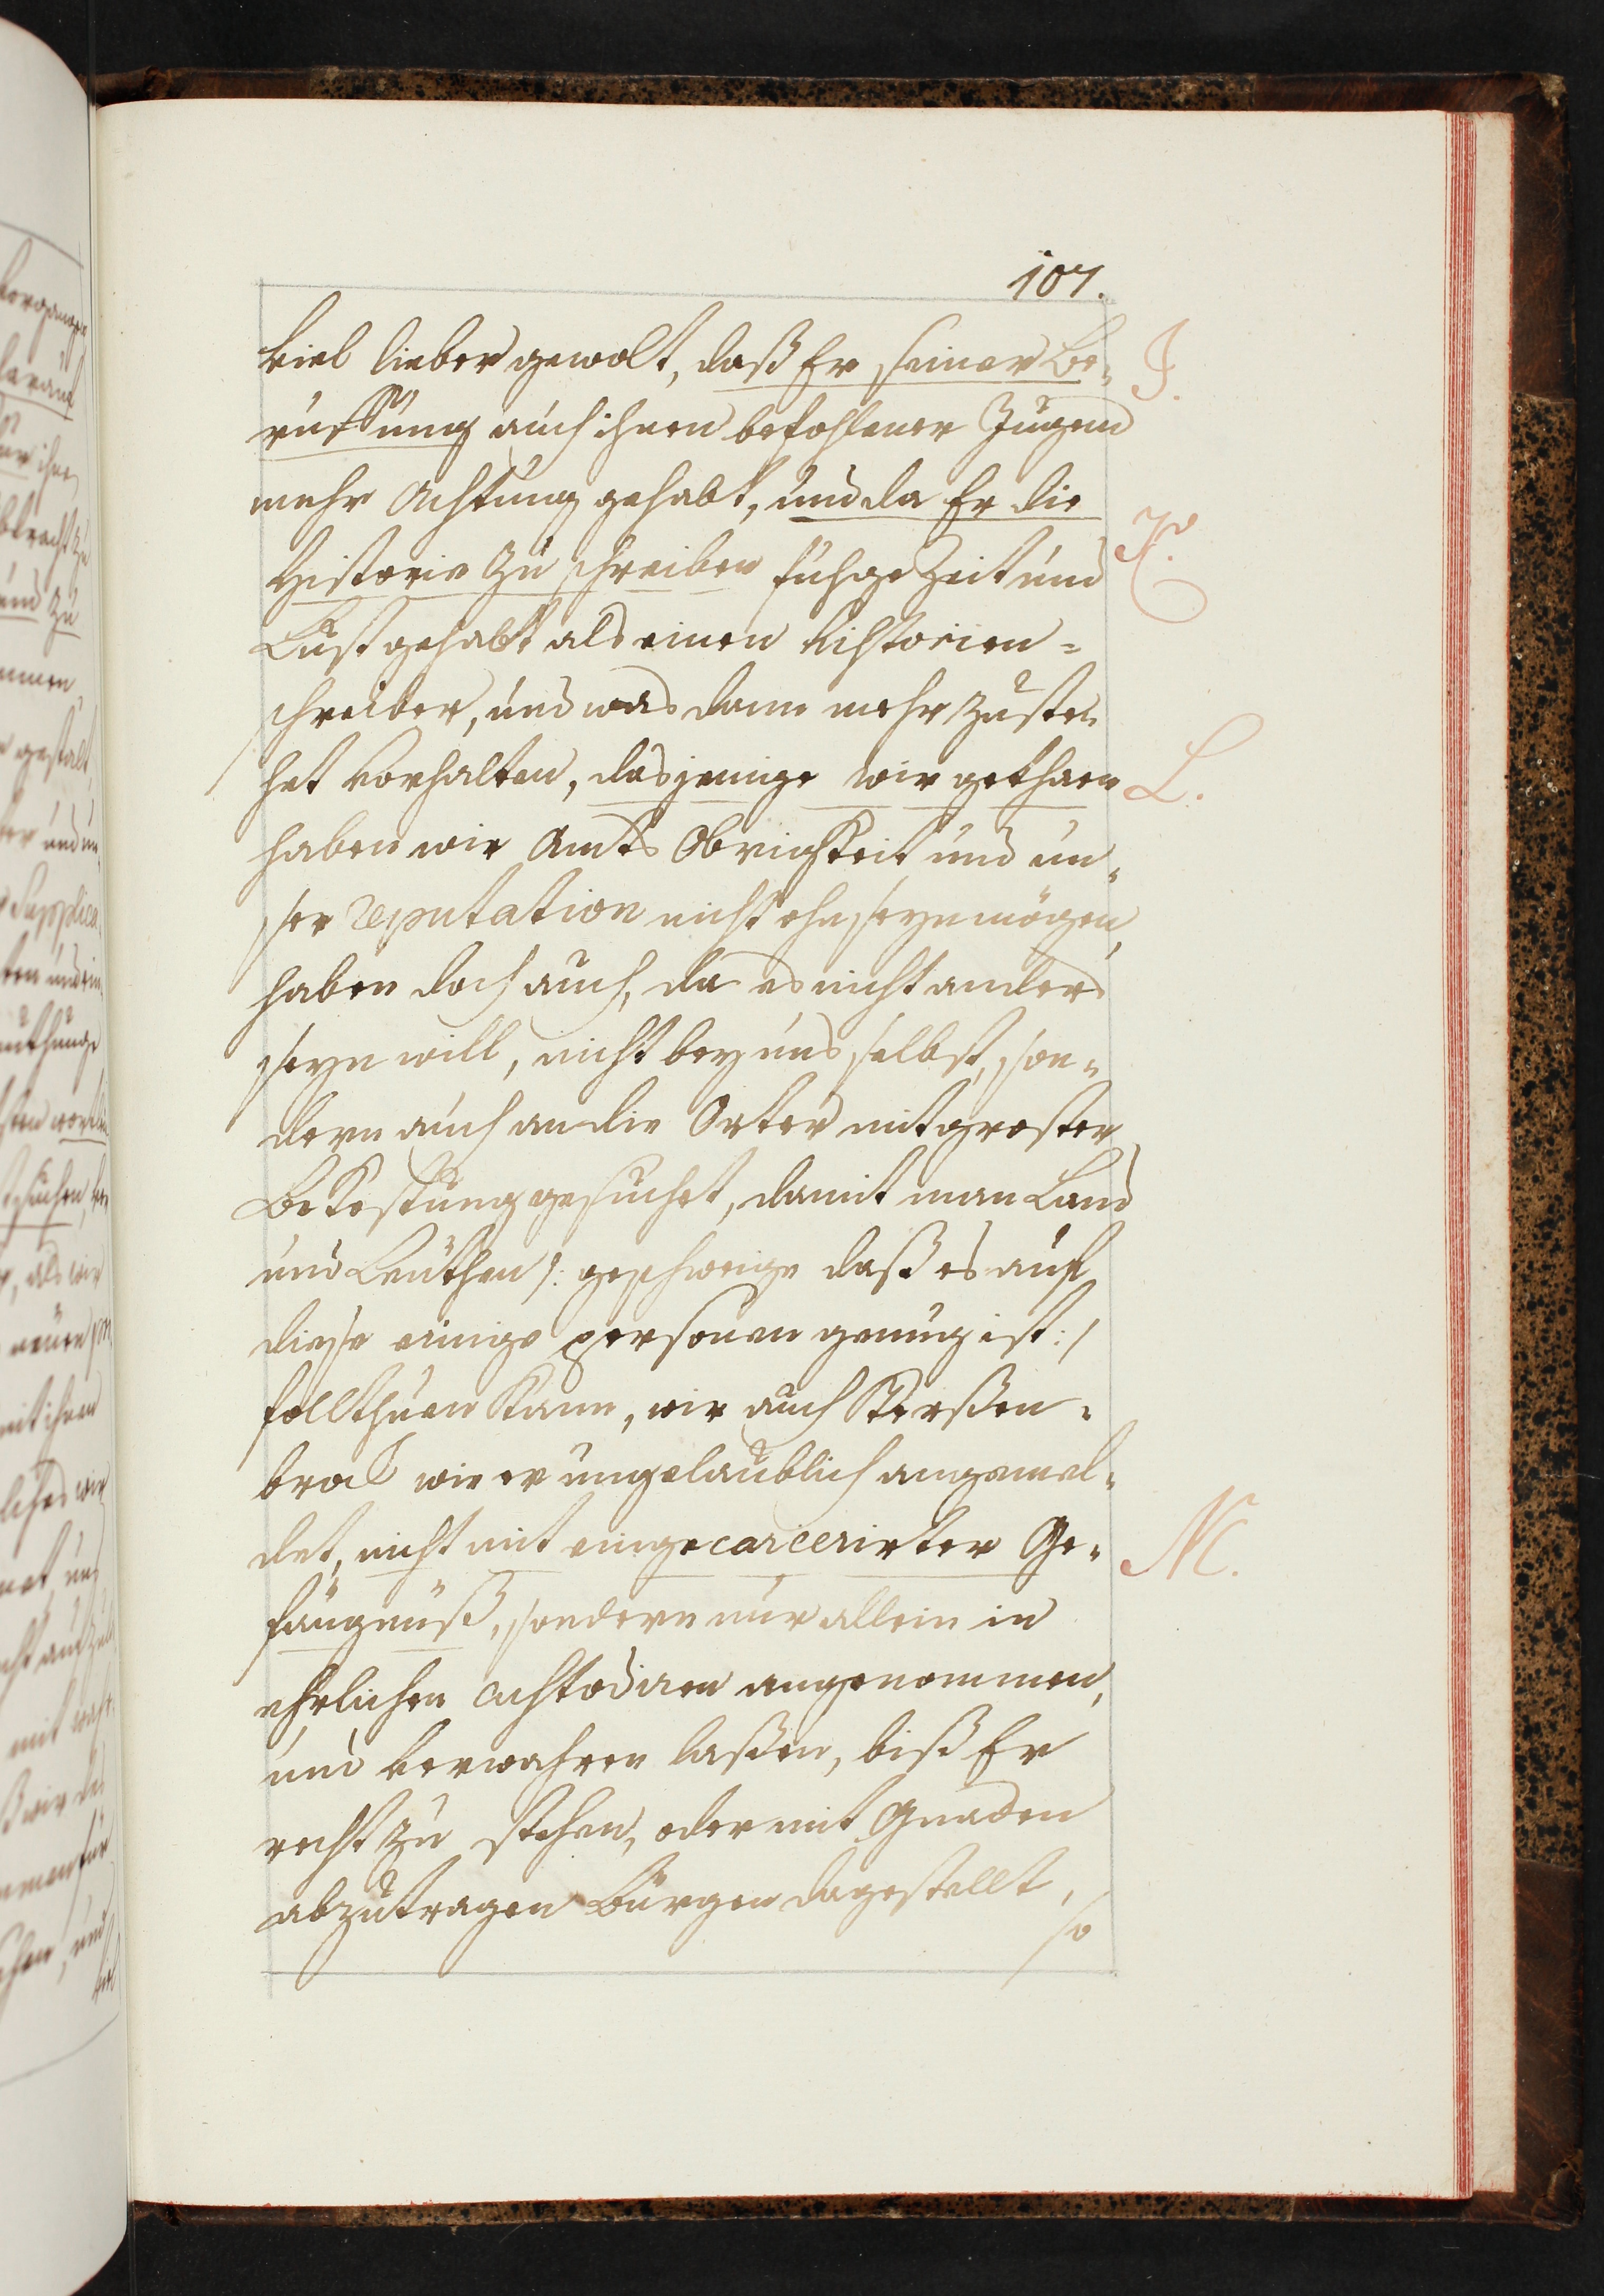 107.
viel lieber gewolt, daß Er seiner Be-
ruffung auch ihnen befohlener Jugend
mehr Achtung gehabt, und da Er die
Historie zu schreiben fuhge Zeit und
Lust gehabt als einen historien=
schreiber, und was dann mehr zuste-
het vorhalten, dasjenige wir gethaen
haben wir Amts Obrigkeit und un-
ser reputation nicht ohn seyn mögen,
haben doch auch, da es nicht anders
seyn will, nicht bey uns selbst, son-
dern auch an die Orter mit groster
Bekostung gesuchet, damit man Land
und Leuthen /: geschweige daß es auf
diese einige personen genug ist :/
follthuen kann, wir auch Kerßen-
brock wie er ungelaublich angemel-
det, nicht mit eingecarcerirter Ge-
fängnuß, sondern nur allein in
ehrlichen Custodien angenommen,
und verwahren laßen, biß Er
recht zu stehen, oder mit Gnaden
abzutragen Bürgen dagestellt,
so
J.
K.
L.
M.